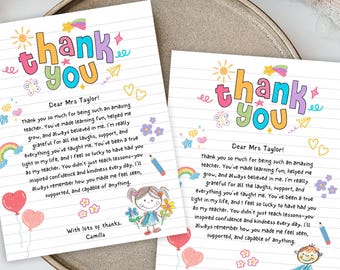 thank
you
Dear Mrs Taylor!
Thank you so much for being such an amazing
teacher. You've made learning fun, helped me
grow, and always believed in me. I'm really
grateful for all the laughs, support, and
everything you've taught me. You've been a true
light in my life, and I feel so lucky to have had you
as my teacher. You didn't just teach lessons—you
inspired confidence and kindness every day. I'll
always remember how you made me feel seen,
supported, and capable of anything.
With lots of thanks,
Camilla
thank
you
Dear Mrs Taylor!
Thank you so much for being such an amazing
teacher. You've made learning fun, helped me
grow, and always believed in me. I'm really
grateful for all the laughs, support, and
everything you've taught me. You've been a true
light in my life, and I feel so lucky to have had
as my teacher. You didn't just teach lessons—you
inspired confidence and kindness every day.
always remember how you made me feel seen,
supported, and capable of anything.